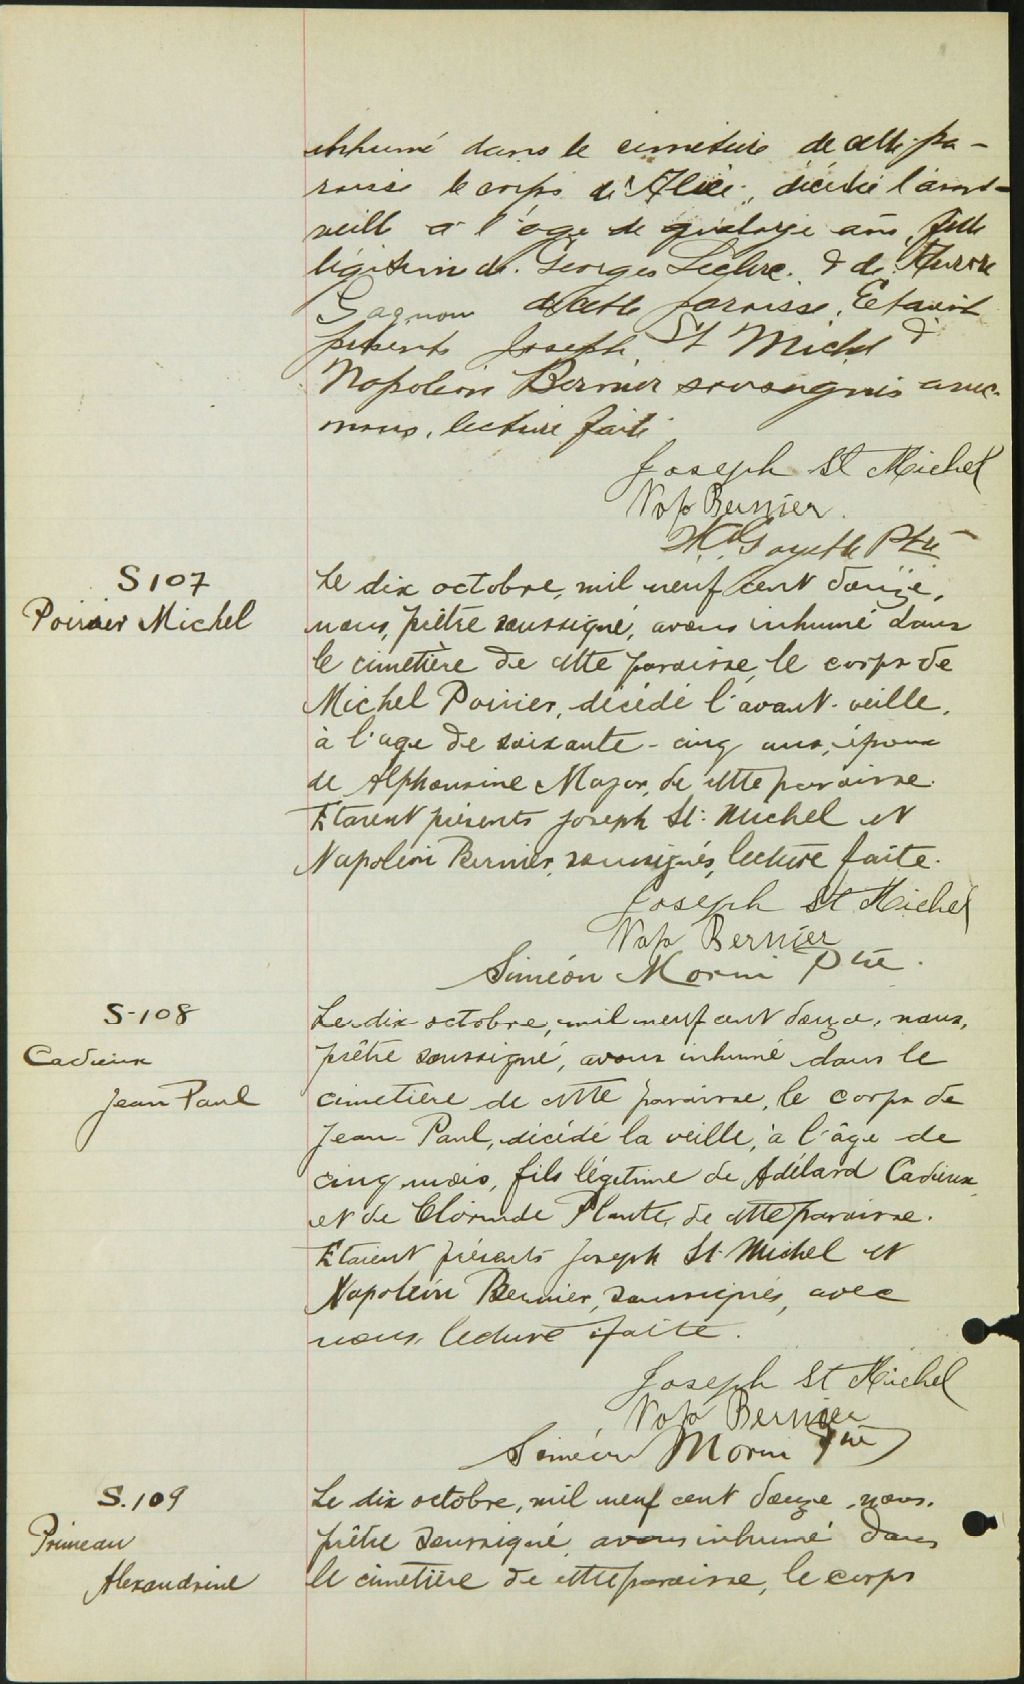 inhumé dans le cimetière de cette pa-
roisse le corps de Alice, décédée l'avant-
veille à l'âge de quatorze ans, fille
légitime de Georges Leclerc & de Aurore
Gagnon de cette paroisse. Etaient
présents Joseph St Michel &
Napoléon Bernier soussignés avec
nous, lecture faite
Joseph St Michel
Napo Bernier
Ptre
S 107
Poirier Michel
Le dix octobre, mil neuf cent douze,
nous, prêtre soussigné, avons inhumé dans
le cimetière de cette paroisse, le corps de
Michel Poirier, décédé l'avant-veille,
à l'age de soixante-cinq ans, époux
de Alphonsine Major, de cette paroisse.
Etaient présents Joseph St. Michel et
Napoléon Bernier, soussignés, lecture faite.
Joseph St Michel
Napo Bernier
Siméon Morin Ptre.
S-108
Cadieux
Jean Paul
Le dix octobre, mil neuf cent douze, nous,
prêtre soussigné, avons inhumé dans le
cimetière de cette paroisse, le corps de
Jean-Paul, décédé la veille, à l'âge de
cinq mois, fils légitime de Adélard Cadieux
et de Clorinde Plante, de cette paroisse.
Etaient présents Joseph St-Michel et
Napoléon Bernier, soussignés, avec
nous, lecture faite.
Joseph St Michel
Napo Bernier
Siméon Morin Ptre
S. 109
Primeau
Alexandrine
Le dix octobre, mil neuf cent douze, nous,
prêtre soussigné, avons inhumé dans
le cimetière de cette paroisse, le corps